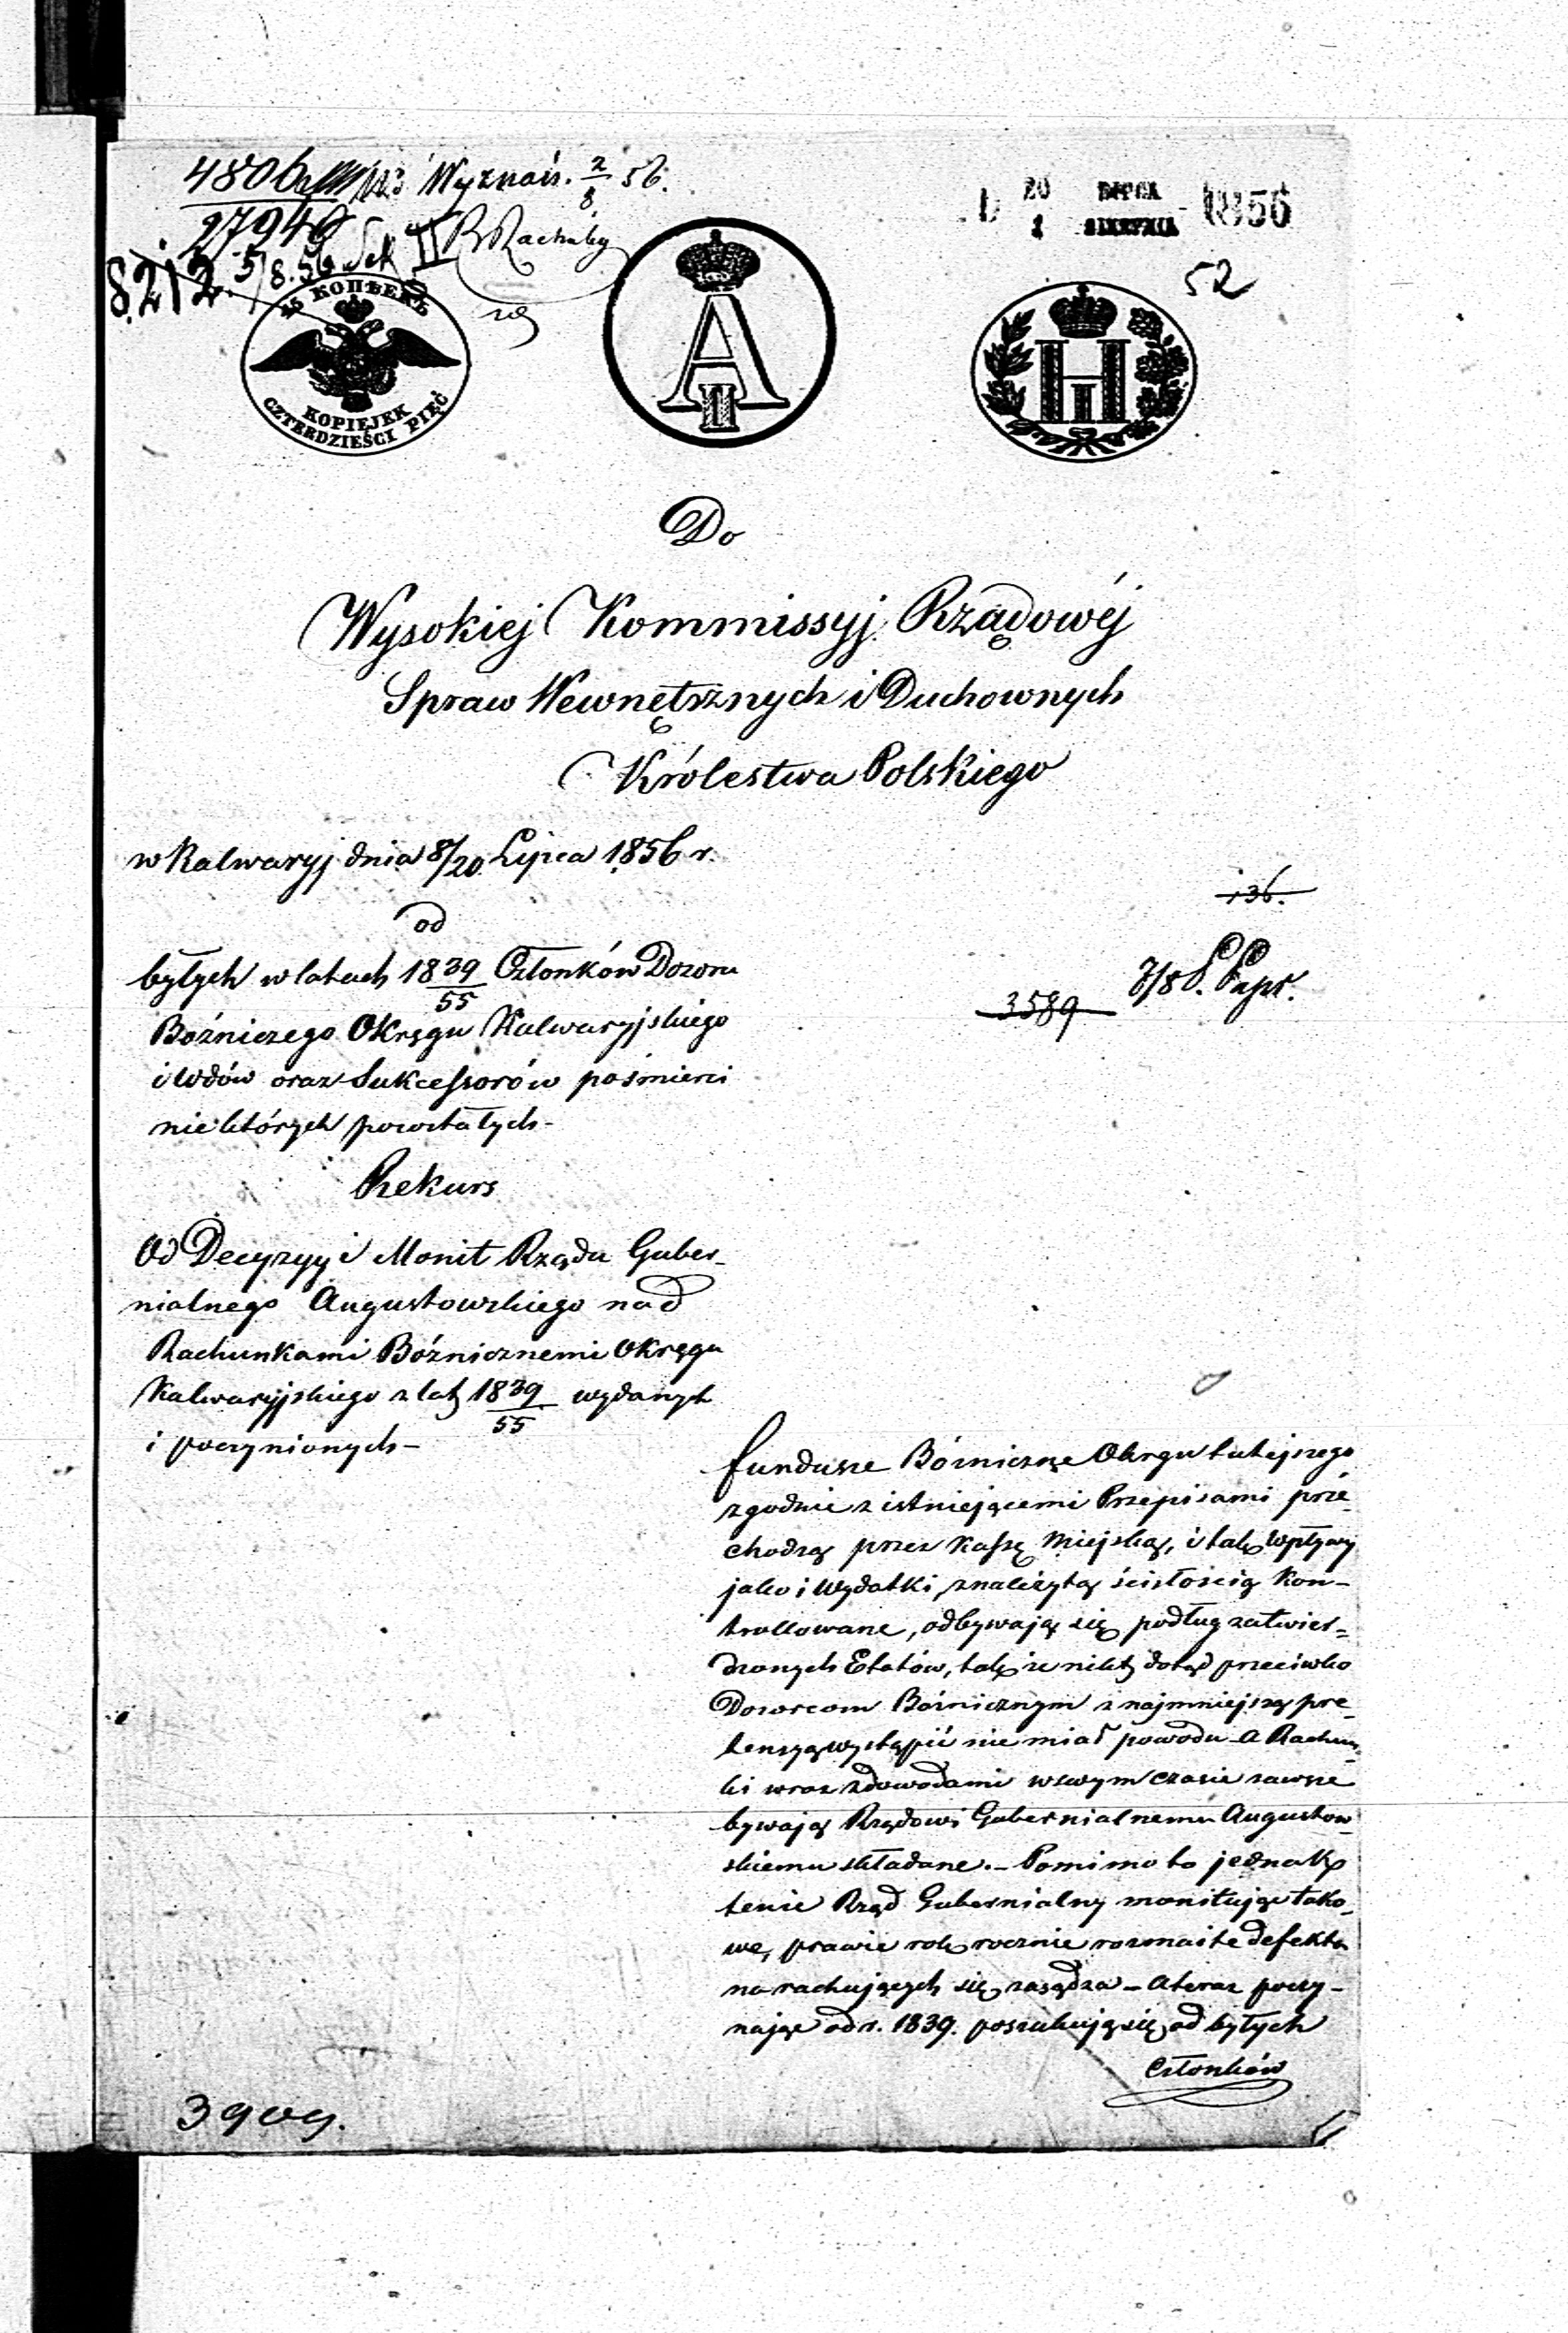 4806 Wyznań. 2/8 56.
27946
8212. 5/8.56 Sek II R Rachuby
D 20 LIPCA 1 SIERPNIA 1856
52
45 КОПѢЕКЪ
KOPIEJEK
CZTERDZIEŚCI PIĘĆ
A II
H I
Do
Wysokiej Kommissyj Rządowéj
Spraw Wewnętrznych i Duchownych
Królestwa Polskiego
w Kalwaryj dnia 8/20 Lipca 1856 r.
136.
od
byłych w latach 1839/55 Członków Dozoru
7/8 S. Papr.
3589
Bożniczego Okręgu Kalwaryjskiego
i Wdów oraz Sukcessorów pośmierci
niektórych powstałych-
Rekurs
Od Decyzyj i Monit Rządu Guber-
nialnego Augustowskiego nad
Rachunkami Bóżnicznemi Okręgu
Kalwaryjskiego z lat 1839/55 wydanych
i poczynionych-
Fundusze Bóżniczne Okręgu tutejszego
zgodnie z istniejącemi Przepisami prze-
chodzą przez Kassę Miejską, i tak wpływy
jako i Wydatki, z należytą ścisłością Kon-
trollowane, odbywają się podług zatwier=
dzonych Etatów, tak że nikt dotąd przeciwko
Dozorcom Bóżnicznym z najmniejszą pre-
tensyą wystąpić nie miał powodu - a Rachun-
ki wraz z dowodami w swym czasie zawsze
bywają Rządowi Gubernialnemu Augustow-
skiemu składane. - Pomimo to jednak
tenże Rząd Gubernialny monitując tako-
we, prawie rok rocznie rozmaite defekta
na rachujących się zasądza - a teraz poczy-
nając od r. 1839. poszukują się od byłych
Członków
3909.